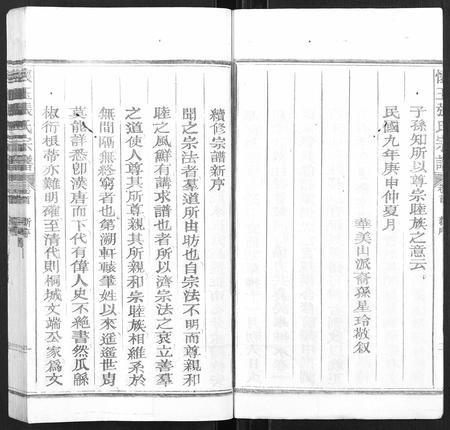 子孫知所以尊宗睦族之意云
民國九年庚申仲夏月
華美山派裔孫星玲敬叙
續修宗譜新序
聞之宗法者羣道所由昉也自宗法不明而尊親和
睦之風鮮有講求譜也者所以濟宗法之衰立善羣
之道使人尊其所尊親其所親和宗睦族相維系於
無間隔無終窮者也第溯軒轅肇姓以來遥遥世冑
莫能詳悉卽漢唐而下代有偉人史不絶書然瓜緜
椒衍根蒂亦難明確至清代則桐城文端公家爲文
張氏宗譜
新序